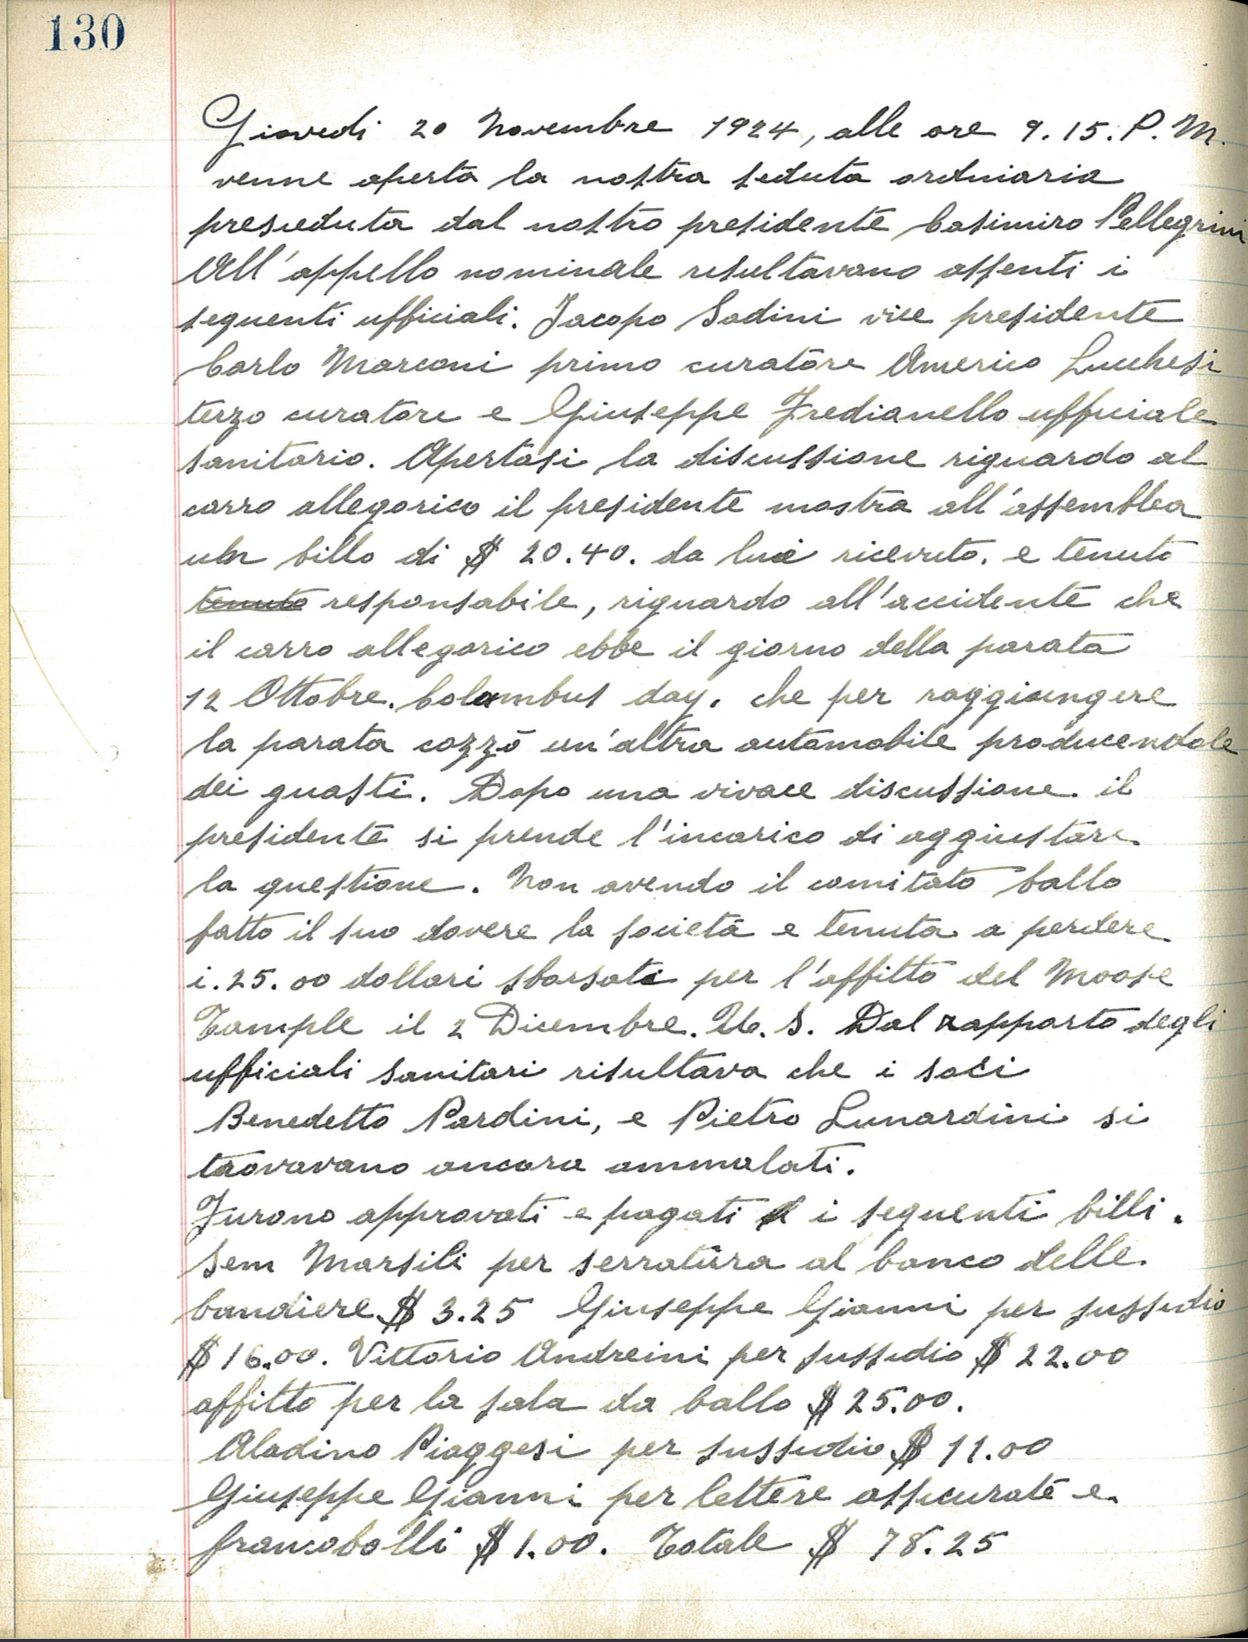 130
Giovedi 20 Novembre 1924, alle ore 9.15. P. M.
venne aperta la nostra seduta ordinaria
presieduta dal nostro presidente Casimiro Pellegrini
All'appello nominale resultavano assenti i
seguenti ufficiali. Jacopo Sodini vice presidente
Carlo Marconi primo curatore Americo Lucchesi
terzo curatore e Giuseppe Fredianello ufficiale
sanitario. Apertasi la discussione riguardo al
carro allegorico il presidente mostra all'assemblea
un billo di $ 20.40. da lui ricevuto. e tenuto
tenuto responsabile, riguardo all'accidente che
il carro allegorico ebbe il giorno della parata
12 Ottobre. Colombus day. che per raggiungere
la parata cozzò un'altra automobile producendole
dei guasti. Dopo una vivace discussione. il
presidente si prende l'incarico di aggiustare
la questione. Non avendo il comitato ballo
fatto il suo dovere la società e tenuta a perdere
i. 25.00 dollari sborsati per l'affitto del Moose
Temple il 2 Dicembre. U. S. Dal rapporto degli
ufficiali sanitari risultava che i soci
Benedetto Pardini, e Pietro Lunardini si
trovavano ancora ammalati.
Furono approvati e pagati i seguenti billi.
Sem Marsili per serratura al banco delle
bandiere $ 3.25 Giuseppe Gianni per sussidio
$ 16.00. Vittorio Andreini per sussidio $ 22.00
affitto per la sala da ballo $ 25.00.
Aladino Piaggesi per sussidio $ 11.00
Giuseppe Gianni per lettere assicurate e
francobolli $ 1.00. Totale $ 78.25